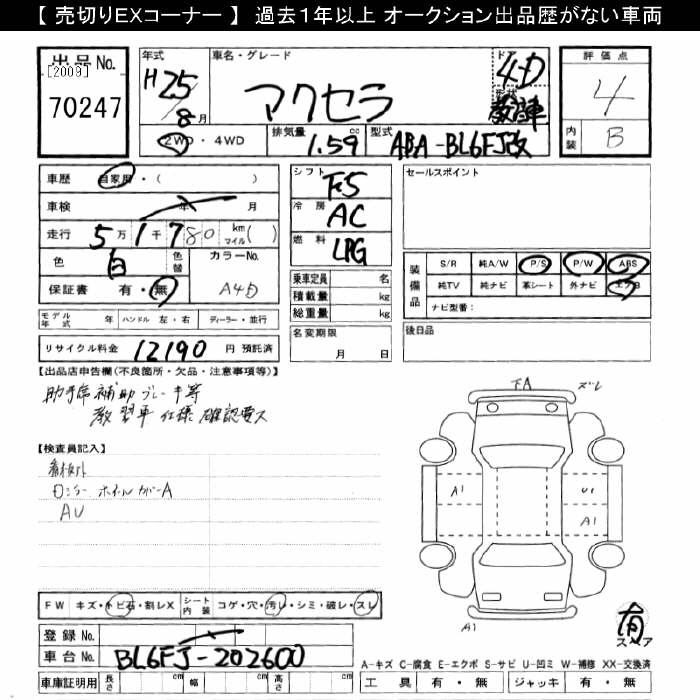 【 売切りEXコーナー 】 過去1年以上 オークション出品歴がない車両
出品No.
[2009]
70247
年式
H25/8月
車名・グレード
マクセラ
ドア
4D
形状
教習車
評価点
4
内装
B
2WD・4WD
排気量
1.59
cc
型式
ABA-BL6FJ改
車歴 自家用・( )
車検 年 月
走行 5万1千780 km マイル( )
色 白 色替
カラーNo.
A4D
保証書 有・無
シフト
F5
冷房
AC
燃料
LPG
乗車定員 名
積載量 kg
総重量 kg
セールスポイント
装備品
S/R 純A/W P/S P/W ABS
純TV 純ナビ 革シート 外ナビ エアB
ナビ型番:
モデル年式 年 ハンドル 左・右 ディーラー・並行
リサイクル料金 12190 円 預託済
名変期限
月 日
後日品
【出品店申告欄(不良箇所・欠品・注意事項等)】
助手席補助ブレーキ等
教習車仕様確認要ス
FA
ズレ
【検査員記入】
ホイールカバーA
AU
A1
U1
A1
A1
FW キズ・トビ石・割レX シート内装 コゲ・穴・汚レ・シミ・破レ・スレ
有
スペア
登録No.
車台No. BL6FJ-202600
A-キズ C-腐食 E-エクボ S-サビ U-凹ミ W-補修 XX-交換済
車庫証明用 長さ cm 幅 cm 高さ cm
工具 有・無 ジャッキ 有・無